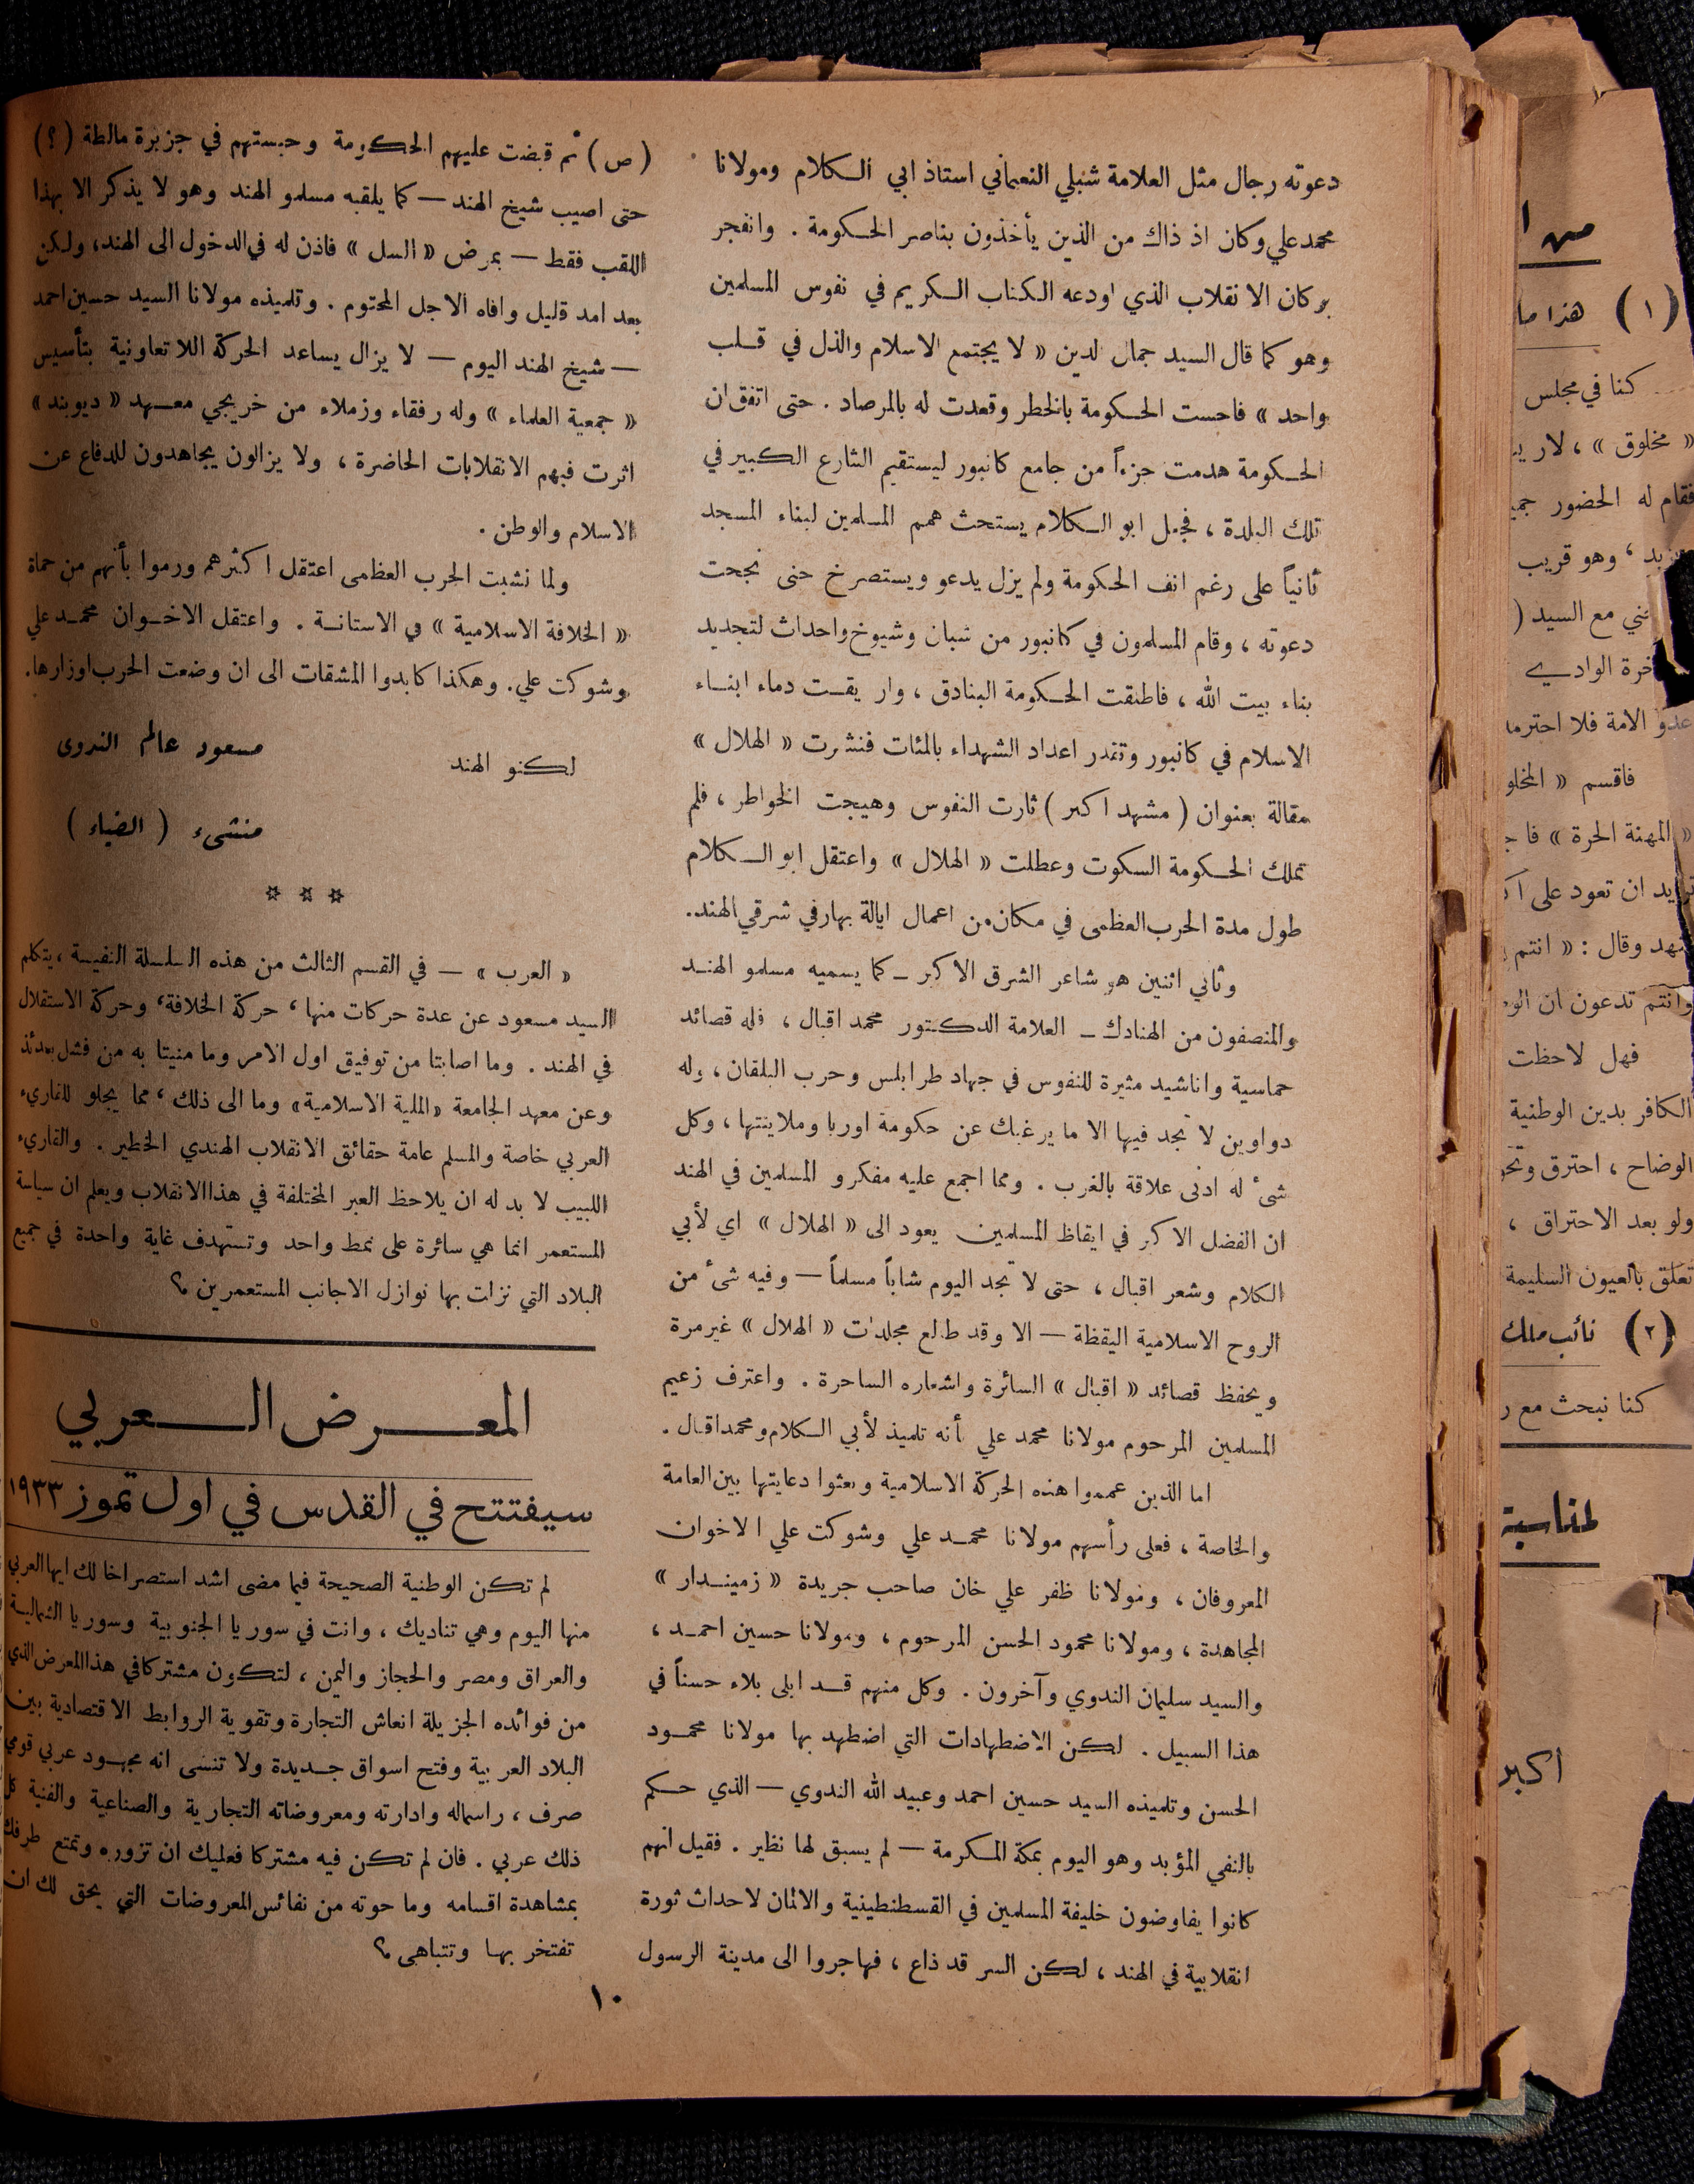 دعوته رجال مثل العلامة شبلي النعماني استاذ ابي الكلام ومولانا
محمد علي وكان اذ ذاك من الذين يأخذون بناصر الحكومة . وانفجر
بركان الانقلاب الذي اودعه الكتاب الكريم في نفوس المسلمين
وهو كما قال السيد جمال لدين « لا يجتمع الاسلام والذل في قلب
واحد » فاحست الحكومة بالخطر وقعدت له بالمرصاد . حتى اتفق ان
الحكومة هدمت جزءاً من جامع كانبور ليستقيم الشارع الكبير في
تلك البلدة ، فجعل ابو الكلام يستحث همم المسلمين لبناء المسجد
ثانياً على رغم انف الحكومة ولم يزل يدعو ويستصرخ حتى نجحت
دعوته ، وقام المسلمون في كانبور من شبان وشيوخ واحداث لتجديد
بناء بيت الله ، فاطلقت الحكومة البنادق ، واريقت دماء ابناء
الاسلام في كانبور وتقدر اعداد الشهداء بالمئات فنشرت « الهلال »
مقالة بعنوان ( مشهد اكبر ) ثارت النفوس وهيجت الخواطر ، فلم
تملك الحكومة السكوت وعطلت « الهلال » واعتقل ابو الكلام
طول مدة الحرب العظمى في مكان من اعمال ايالة بهار في شرقي الهند.
وثاني اثنين هو شاعر الشرق الاكبر ــ كما يسميه مسلمو الهند
والمنصفون من الهنادك ــ العلامة الدكتور محمد اقبال ، فله قصائد
حماسية واناشيد مثيرة للنفوس في جهاد طرابلس وحرب البلقان ، وله
دواوين لا تجد فيها الا ما يرغبك عن حكومة اوربا وملاينتها ، وكل
شئ له ادنى علاقة بالغرب . ومما اجمع عليه مفكرو المسلمين في الهند
ان الفضل الاكبر في ايقاظ المسلمين يعود الى « الهلال » اي لأبي
الكلام وشعر اقبال ، حتى لا تجد اليوم شاباً مسلماً — وفيه شئ من
الروح الاسلامية اليقظة — الا وقد طالع مجلدات « الهلال » غير مرة
ويحفظ قصائد « اقبال » السائرة واشعاره الساحرة . واعترف زعيم
المسلمين المرحوم مولانا محمد علي أنه تلميذ لأبي الكلام ومحمد اقبال .
اما الذين عمموا هذه الحركة الاسلامية وبعثوا دعايتها بين العامة
والخاصة ، فعلى رأسهم مولانا محمد علي وشوكت علي الاخوان
المعروفان ، ومولانا ظفر علي خان صاحب جريدة « زميندار »
المجاهدة ، ومولانا محمود الحسن المرحوم ، ومولانا حسين احمد ،
والسيد سليمان الندوي وآخرون . وكل منهم قد ابلى بلاء حسناً في
هذا السبيل . لكن الاضطهادات التي اضطهد بها مولانا محمود
الحسن وتلميذه السيد حسين احمد وعبيد الله الندوي — الذي حكم
بالنفي المؤبد وهو اليوم بمكة المكرمة — لم يسبق لها نظير . فقيل انهم
كانوا يفاوضون خليفة المسلمين في القسطنطينية والالمان لاحداث ثورة
انقلابية في الهند ، لكن السر قد ذاع ، فهاجروا الى مدينة الرسول
( ص ) ثم قبضت عليهم الحكومة وحبستهم في جزيرة مالطة ( ؟ )
حتى اصيب شيخ الهند — كما يلقبه مسلمو الهند وهو لا يذكر الا بهذا
اللقب فقط — بمرض « السل » فاذن له في الدخول الى الهند، ولكن
بعد امد قليل وافاه الاجل المحتوم . وتلميذه مولانا السيد حسين احمد
— شيخ الهند اليوم — لا يزال يساعد الحركة اللا تعاونية بتأسيس
« جمعية العلماء » وله رفقاء وزملاء من خريجي معهد « ديوبند »
اثرت فيهم الانقلابات الحاضرة ، ولا يزالون يجاهدون للدفاع عن
الاسلام والوطن .
ولما نشبت الحرب العظمى اعتقل اكثرهم ورموا بأنهم من حماة
« الخلافة الاسلامية » في الاستانة . واعتقل الاخوان محمد علي
وشوكت علي . وهكذا كابدوا المشقات الى ان وضعت الحرب اوزارها.
لكنو الهند
مسعود عالم الندوى
منشىء ( الضياء )
☆ ☆ ☆
« العرب » — في القسم الثالث من هذه السلسلة النفيسة ، يتكلم
السيد مسعود عن عدة حركات منها ، حركة الخلافة ، وحركة الاستقلال
في الهند . وما اصابتا من توفيق اول الامر وما منيتا به من فشل بعدئذ
وعن معهد الجامعة «الملية الاسلامية» وما الى ذلك ، مما يجلو للقاريء
العربي خاصة والمسلم عامة حقائق الانقلاب الهندي الخطير . والقاريء
اللبيب لا بد له ان يلاحظ العبر المختلفة في هذا الانقلاب ويعلم ان سياسة
المستعمر انما هي سائرة على نمط واحد وتستهدف غاية واحدة في جميع
البلاد التي نزلت بها نوازل الاجانب المستعمرين ؟
المعرض العربي
سيفتتح في القدس في اول تموز ١٩٣٣
لم تكن الوطنية الصحيحة فيما مضى اشد استصراخا لك ايها العربي
منها اليوم وهي تناديك ، وانت في سوريا الجنوبية وسوريا الشمالية
والعراق ومصر والحجاز واليمن ، لتكون مشتركا في هذا المعرض الذي
من فوائده الجزيلة انعاش التجارة وتقوية الروابط الاقتصادية بين
البلاد العربية وفتح اسواق جديدة ولا تنسى انه مجهود عربي قومي
صرف ، راسماله وادارته ومعروضاته التجارية والصناعية والفنية كل
ذلك عربي . فان لم تكن فيه مشتركا فعليك ان تزوره وتمتع طرفك
بمشاهدة اقسامه وما حوته من نفائس المعروضات التي يحق لك ان
تفتخر بها وتتباهى ؟
١٠
( ١ ) هذا ما
كنا في مجلس
« مخلوق » ، لا ري
فقام له الحضور
، وهو قريب
مع السيد (
الوادي
عدو الامة فلا احترما
فاقسم « المخلو
« المهنة الحرة »
ان تعود على
وقال : « انتم
وانتم تدعون ان
فهل لاحظت
الكافر بدين الوطنية
الوضاح ، احترق
ولو بعد الاحتراق ،
تعلق بالعيون السليمة
( ٢ ) نائب ملك
كنا نبحث مع ر
لمناسبة
اكبر